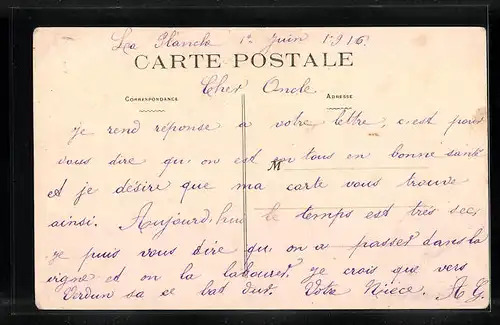 La Planche 1er Juin 1916.
CARTE POSTALE
Cher Oncle
CORRESPONDANCE
ADRESSE
je rend réponse a votre lettre, c'est pour
vous dire qu, on est en tous en bonne santé
M
et je désire que ma carte vous trouve
ainsi. Aujourd,hui le temps est très sec,
je puis vous dire qu, on a passer dans la
vigne et on la labourer je crois que vers
Verdun sa ce bat dur. Votre Nièce. A G.